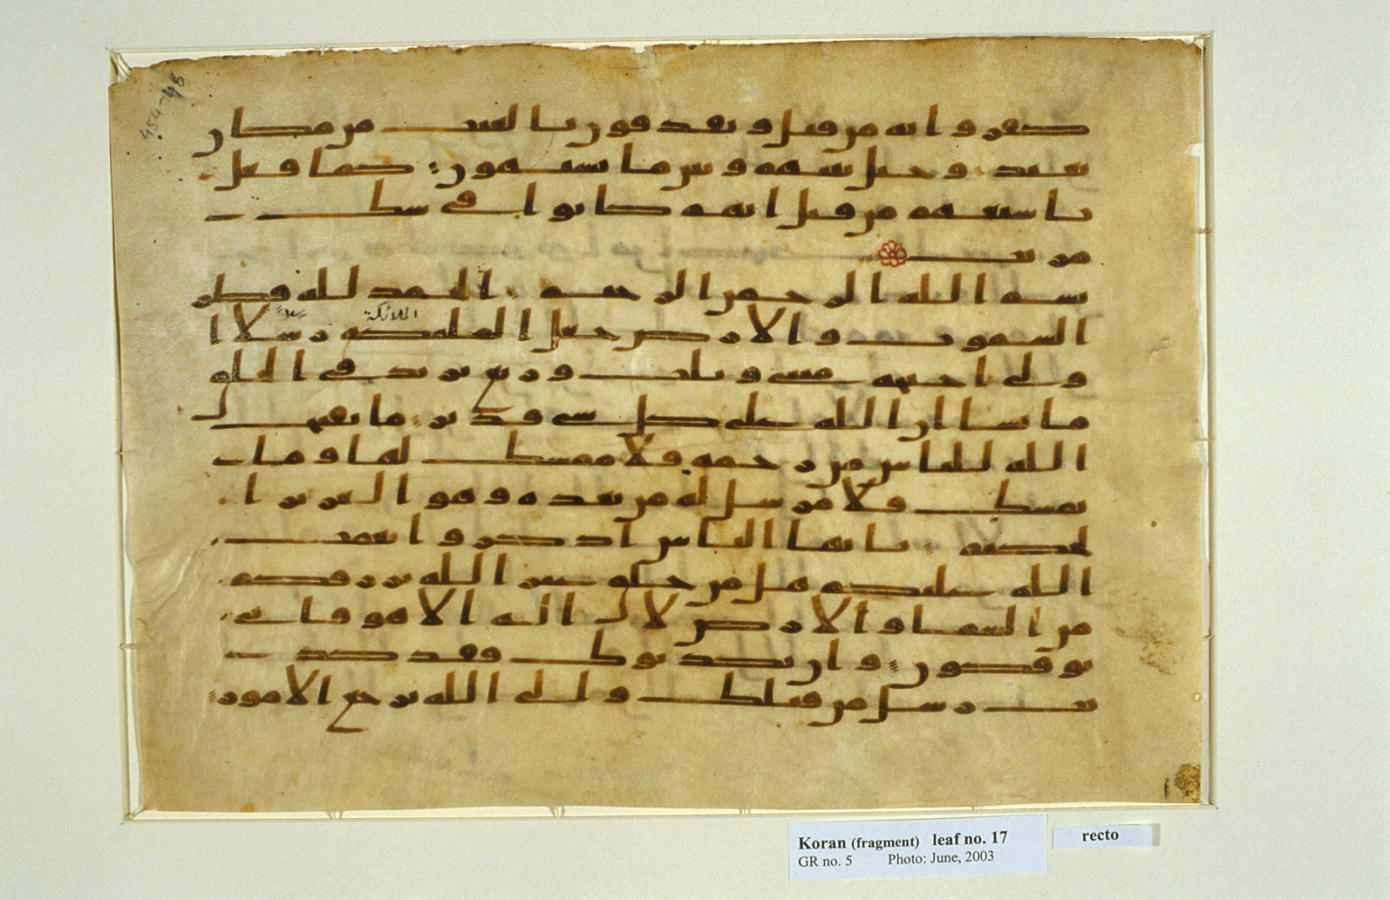 454-48
كفروا به من قبل ويقذفون بالغيب من مكان
بعيد وحيل بينهم وبين ما يشتهون كما فعل
باشيعهم من قبل انهم كانوا في شك
مريب
بسم الله الرحمن الرحيم الحمد لله فطر
الملائكة
السموت والارض جعل الملئكة رسلا ا
ولى اجنحة مثنى وثلث وربع يزيد في الخلق
ما يشا ان الله على كل شي قدير ما يفتح
الله للناس من رحمة فلا ممسك لها وما
يمسك فلا مرسل له من بعده وهو العزيز ا
لحكيم يايها الناس اذكروا نعمت
الله عليكم هل من خلق غير الله يرزقكم
من السما والارض لا اله الا هو فانى
توفكون وان يكذبوك فقد كذ
بت رسل من قبلك والى الله ترجع الامور
Koran (fragment) leaf no. 17
GR no. 5 Photo: June, 2003
recto